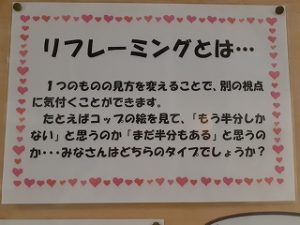 リフレーミングとは…
１つのものの見方を変えることで、別の視点
に気付くことができます。
たとえばコップの絵を見て、「もう半分しか
ない」と思うのか「まだ半分もある」と思うの
か・・・みなさんはどちらのタイプでしょうか？